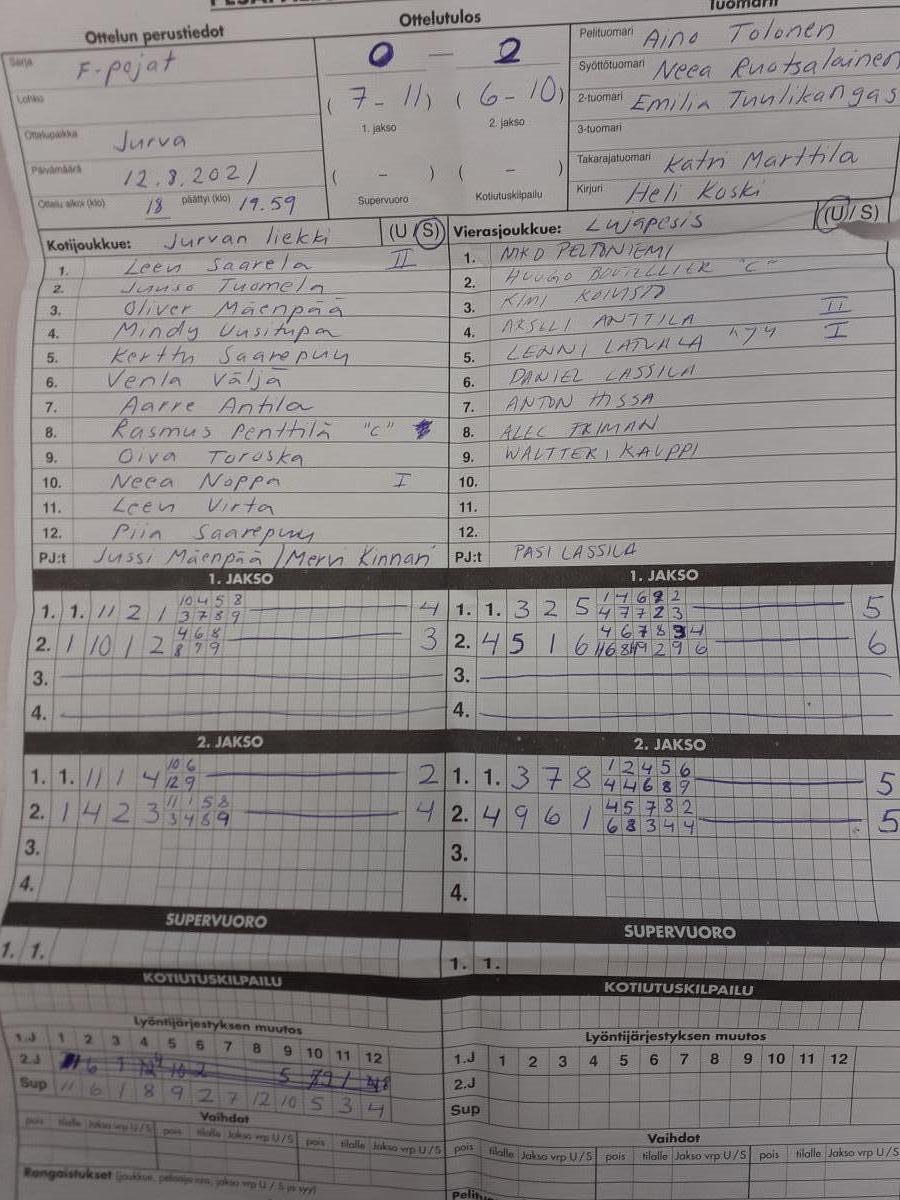 Ottelun perustiedot
Sarja F-pojat
Lohko
Ottelupaikka Jurva
Päivämäärä 12.8.2021
Ottelu alkoi (klo) 18 päättyi (klo) 19.59
Ottelutulos
0 – 2
( 7 - 11 ) ( 6 - 10 )
1. jakso 2. jakso
( - ) ( - )
Supervuoro Kotiutuskilpailu
Tuomarit
Pelituomari Aino Tolonen
Syöttötuomari Neea Ruotsalainen
2-tuomari Emilia Tuulikangas
3-tuomari
Takarajatuomari Katri Marttila
Kirjuri Heli Koski
Kotijoukkue: Jurvan liekki (U/S)
1. Leen Saarela II
2. Juuso Tuomela
3. Oliver Mäenpää
4. Mindy Uusitupa
5. Kerttu Saarepuu
6. Venla Väljä
7. Aarre Antila
8. Rasmus Penttilä "C"
9. Oiva Toruska
10. Neea Noppa I
11. Leen Virta
12. Piia Saarepuu
PJ:t Jussi Mäenpää / Mervi Kinnari
Vierasjoukkue: Lujapesis (U/S)
1. NIKO PELTONIEMI
2. HUUGO "C"
3. KIMI KOIVISTO
4. ANTTILA II
5. LENNI LATVALA I
6. DANIEL LASSILA
7. ANTON HISSA
8. ALEC FRIMAN
9. WALTTERI KAUPPI
10.
11.
12.
PJ:t PASI LASSILA
1. JAKSO
1. 1. 11 2 1 10 4 5 8 4
3 7 8 9
2. 1 10 1 2 4 6 8 3
8 7 9
3.
4.
1. JAKSO
1. 1. 3 2 5 1 4 6 2 2 5
4 7 7 2 3
2. 4 5 1 6 4 6 7 8 3 4 6
2 9 6
3.
4.
2. JAKSO
1. 1. 11 1 4 10 6 2
12 9
2. 1 4 2 3 11 1 5 8 4
3 4 8 9
3.
4.
2. JAKSO
1. 1. 3 7 8 1 2 4 5 6 5
4 4 6 8 9
2. 4 9 6 1 4 5 7 8 2 5
6 8 3 4 4
3.
4.
SUPERVUORO
1. 1.
SUPERVUORO
1. 1.
KOTIUTUSKILPAILU
KOTIUTUSKILPAILU
Lyöntijärjestyksen muutos
1.J 1 2 3 4 5 6 7 8 9 10 11 12
2.J
Sup 11 6 1 8 9 2 7 12 10 5 3 4
Vaihdot
pois tilalle Jakso vrp U/S pois tilalle Jakso vrp U/S pois tilalle Jakso vrp U/S
Rangaistukset (joukkue, pelaajanro, jakso vrp U/S ja syy)
Lyöntijärjestyksen muutos
1.J 1 2 3 4 5 6 7 8 9 10 11 12
2.J
Sup
Vaihdot
pois tilalle Jakso vrp U/S pois tilalle Jakso vrp U/S pois tilalle Jakso vrp U/S